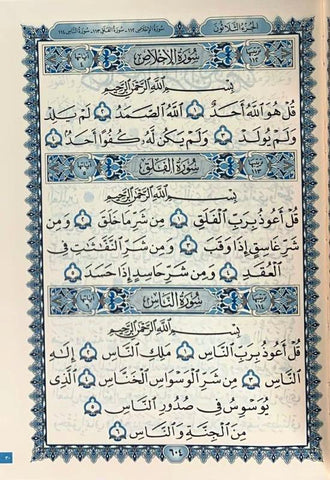 الجزء الثلاثون سورة الإخلاص ١١٢ - سورة الفلق ١١٣ - سورة الناس ١١٤
سُورَةُ الإِخْلَاصِ
بِسْمِ اللَّهِ الرَّحْمَٰنِ الرَّحِيمِ
قُلْ هُوَ اللَّهُ أَحَدٌ ١ اللَّهُ الصَّمَدُ ٢ لَمْ يَلِدْ
وَلَمْ يُولَدْ ٣ وَلَمْ يَكُن لَّهُ كُفُوًا أَحَدٌ ٤
سُورَةُ الْفَلَقِ
بِسْمِ اللَّهِ الرَّحْمَٰنِ الرَّحِيمِ
قُلْ أَعُوذُ بِرَبِّ الْفَلَقِ ١ مِن شَرِّ مَا خَلَقَ ٢ وَمِن
شَرِّ غَاسِقٍ إِذَا وَقَبَ ٣ وَمِن شَرِّ النَّفَّاثَاتِ فِي
الْعُقَدِ ٤ وَمِن شَرِّ حَاسِدٍ إِذَا حَسَدَ ٥
سُورَةُ النَّاسِ
بِسْمِ اللَّهِ الرَّحْمَٰنِ الرَّحِيمِ
قُلْ أَعُوذُ بِرَبِّ النَّاسِ ١ مَلِكِ النَّاسِ ٢ إِلَٰهِ
النَّاسِ ٣ مِن شَرِّ الْوَسْوَاسِ الْخَنَّاسِ ٤ الَّذِي
يُوَسْوِسُ فِي صُدُورِ النَّاسِ ٥
مِنَ الْجِنَّةِ وَالنَّاسِ ٦
٦٠٤
٣٠